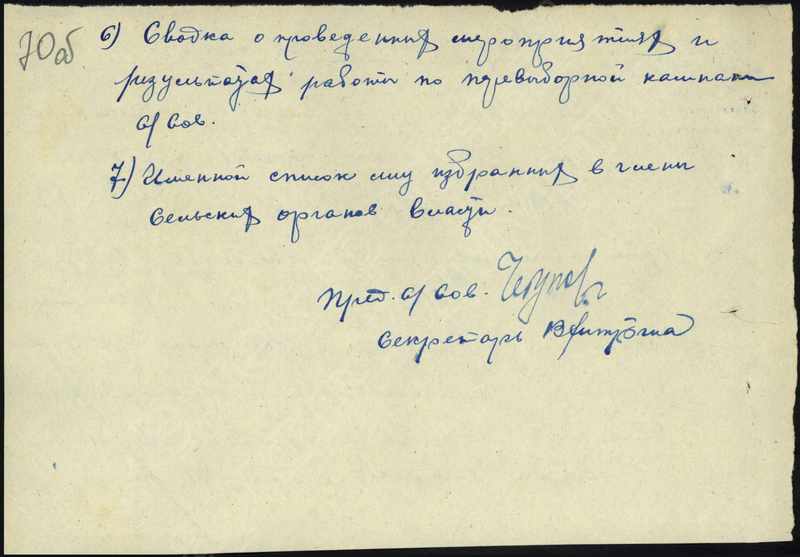 70об
6) Сводка о проведенных мероприятиях и
результатах работы по перевыборной кампании
с/сов.
7) Именной список лиц избранных в члены
Сельских органов власти.
Пред. с/сов.
Секретарь